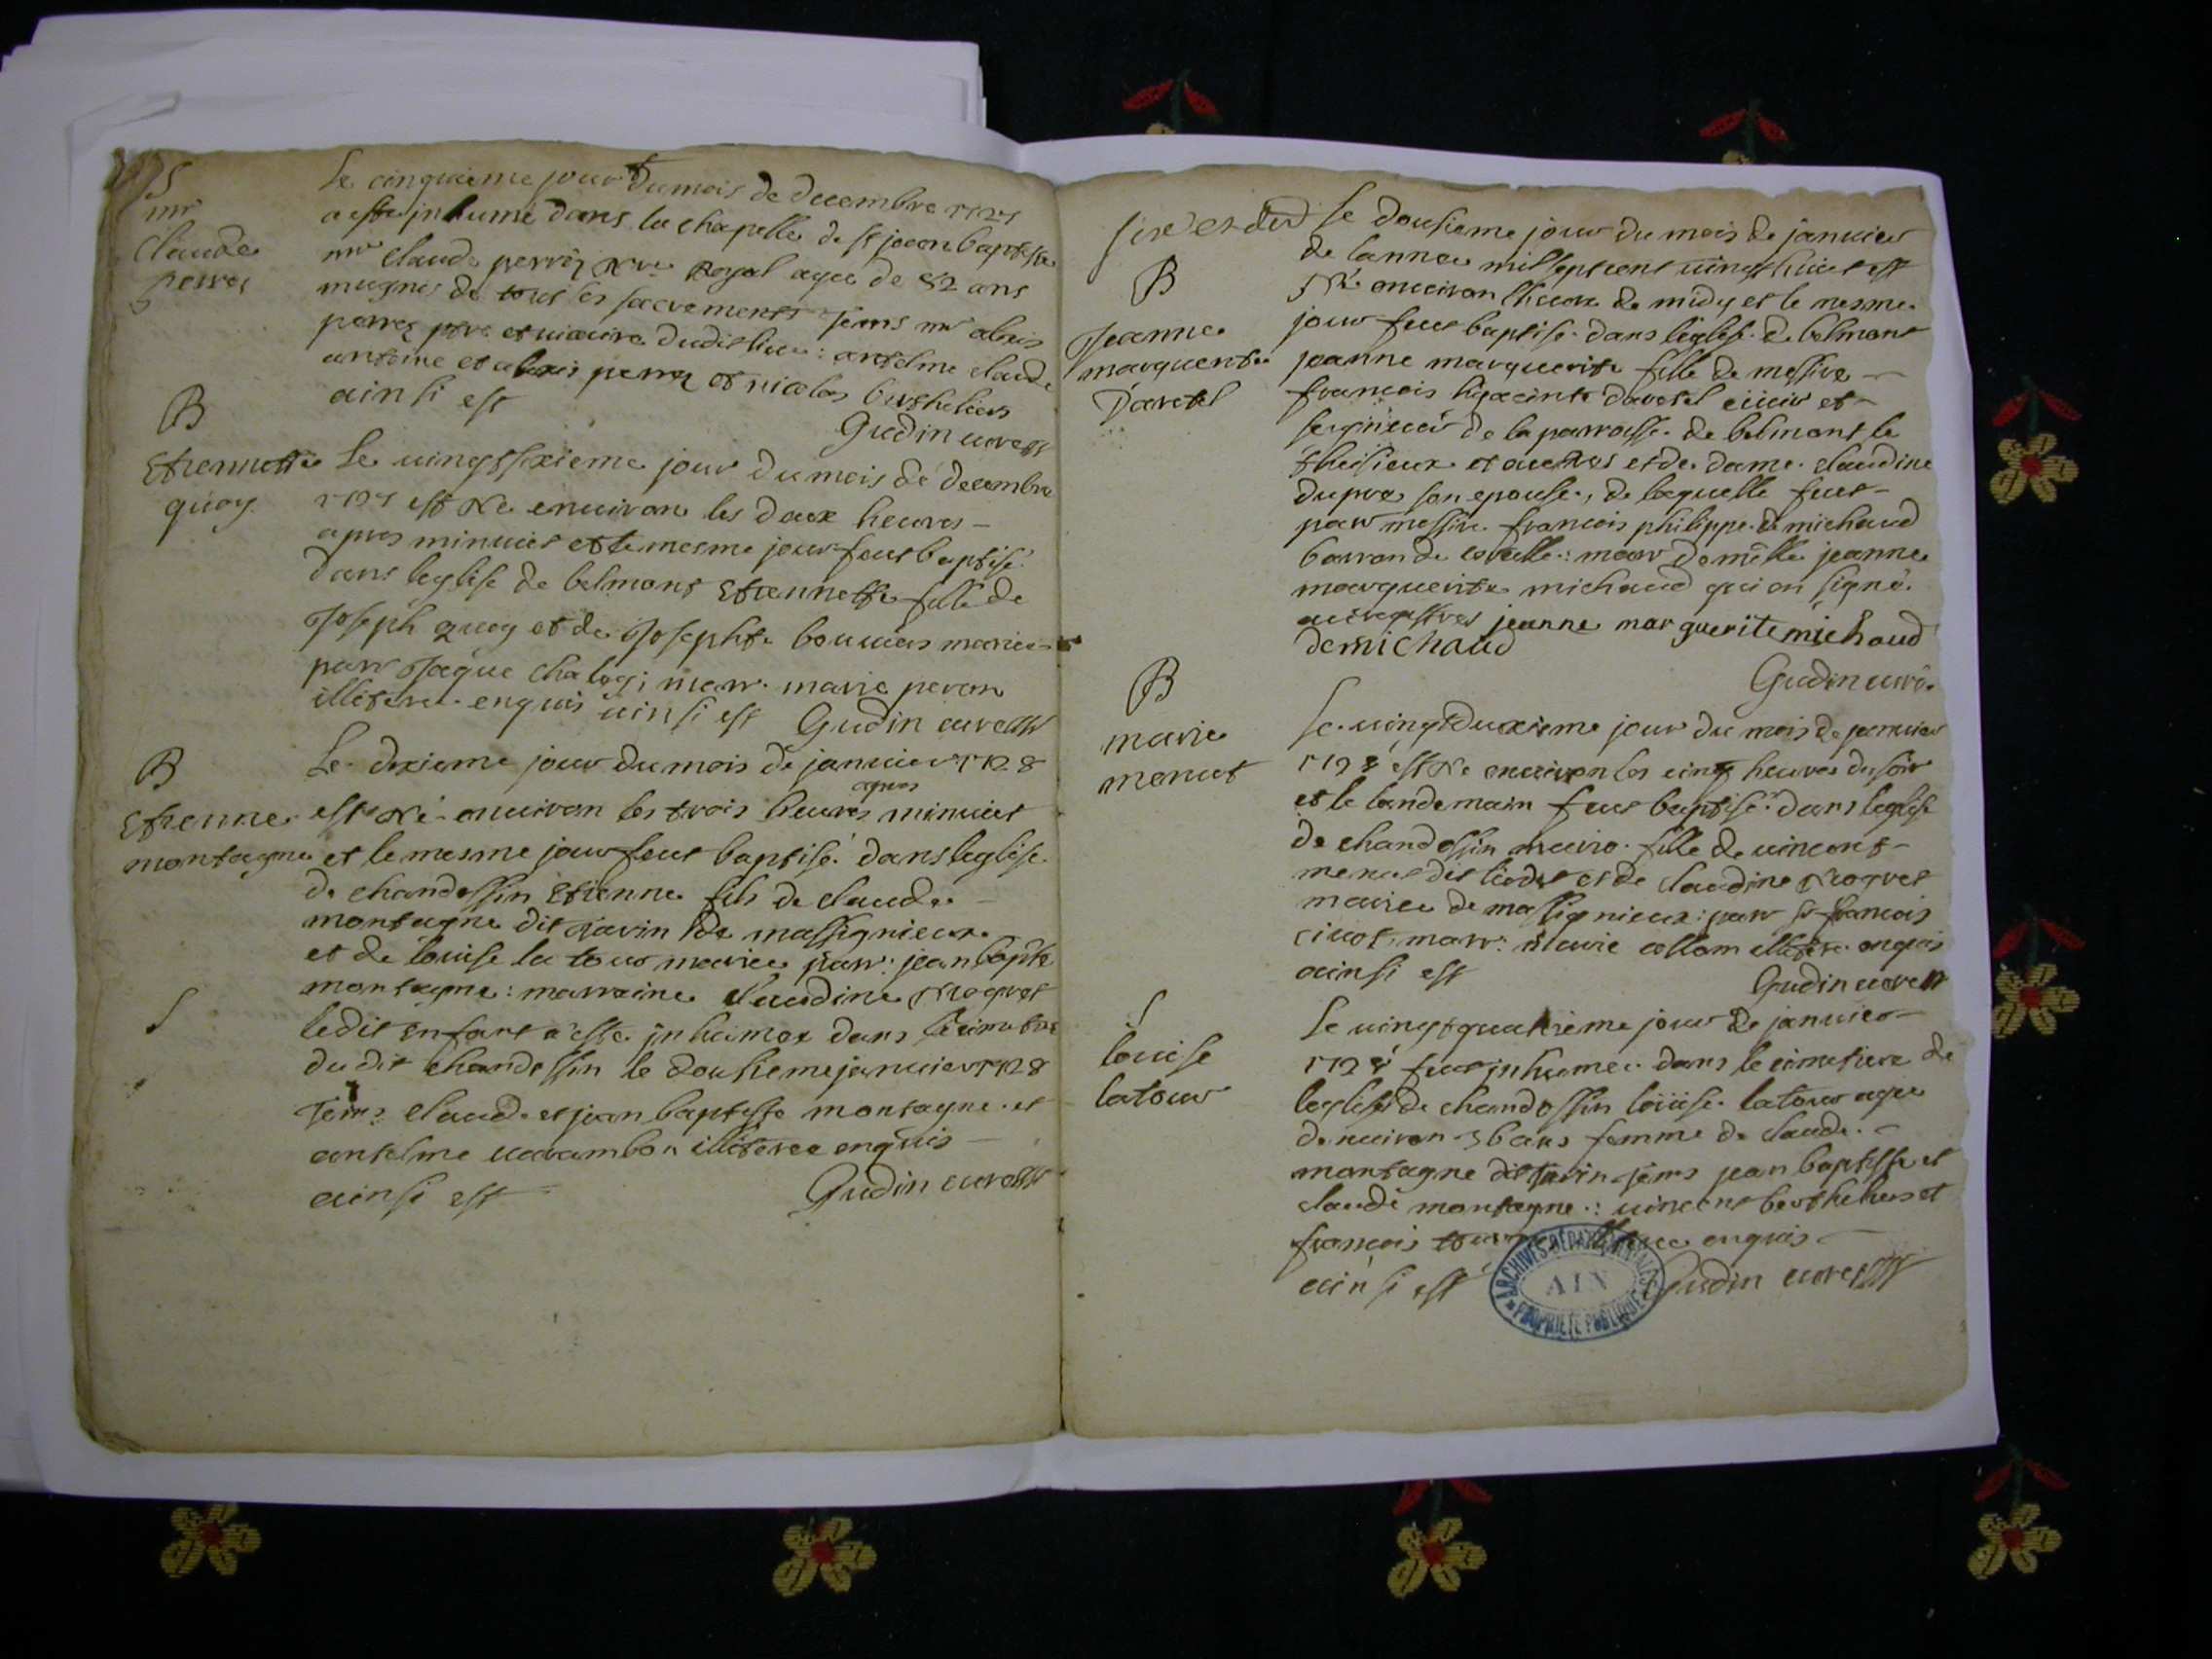 S
mr
Claude
perroz
Le cinquieme jour du mois de decembre 1727
a esté inhumé dans la chapelle de st jean baptiste
mre Claude perroz Nre Royal agé de 82 ans
mugnis de tous les sacrements tems mr alexis
perroz ptre et vicaire dudit lieu: antelme claude
antoine et alexis perroz et nicolas berthelier
ainsi est
Gudin curé
B
Etiennette
quoy
Le vingt sixieme jour du mois de decembre
1727 est Né enuiron les deux heures
apres minuict et le mesme jour feut baptisé
dans leglise de belmont Etiennette fille de
Joseph quoy et de Josephte bouuier mariés
parr Jaque chaley; marr. marie peron
illiteré enquis ainsi est Gudin curé
B
Etienne
montagne
Le dixieme jour du mois de januier 1728
est Né enuiron les trois heures apres minuict
et le mesme jour feut baptisé dans leglise
de chandossin Etienne fils de claude
montagne dit javin de massignieux
et de louise la tour mariés parr: jean bapte
montagne: marraine claudine
S
ledit enfant a esté inhumer dans le cimetiere
du dit chandossin le douzieme januier 1728
tems claude et jean baptiste montagne et
antelme uarambon illiteree enquis
ainsi est
Gudin curé
B
Jeanne
marguerite
Darestel
le dousieme jour du mois de januier
de lannee mil sept cent uingt huict est
Né enuiron lheure de midy et le mesme
jour feut baptisé dans leglise de belmont
jeanne marguerite fille de messire
francois hyacinte darestel ecuier et
seigneur de la parroisse de belmont le
et autres et de dame claudine
dupra son epouse, de laquelle feut
parr messire francois philippe de michaud
barron de corcelle: marr domelle jeanne
marguerite michaud qui on signé
jeanne marguerite michaud
de michaud
Gudin curé
B
marie
menut
Le uingt deuxieme jour du mois de januier
1728 est Né enuiron les cinq heures du soir
et le landemain feut baptisé dans leglise
de chandossin marie fille de uincent
menut dit liodet et de claudine
mariee de massignieux: parr sr francois
marr: marie collom illiteré enquis
ainsi est
Gudin curé
S
louise
latour
Le uingt quatrieme jour de januier
1728 feut inhumee dans le cimetiere de
leglise de chandossin loüise latour agee
denuiron 36 ans femme de claude
montagne dit javin tems jean baptiste et
claude montagne: uincent berthelier et
francois enquis
ainsi est
Gudin curé
ARCHIVES DÉPARTEMENTALES
AIN
PROPRIÉTÉ PUBLIQUE